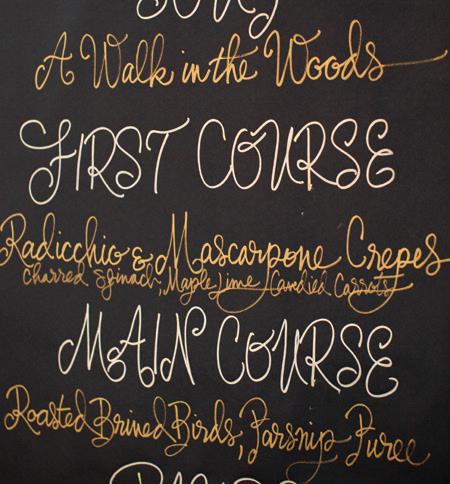 A Walk in the Woods
FIRST COURSE
Radicchio & Mascarpone Crepes
Charred Spinach, Maple Lime Candied Carrots
MAIN COURSE
Roasted Brined Birds, Parsnip Puree